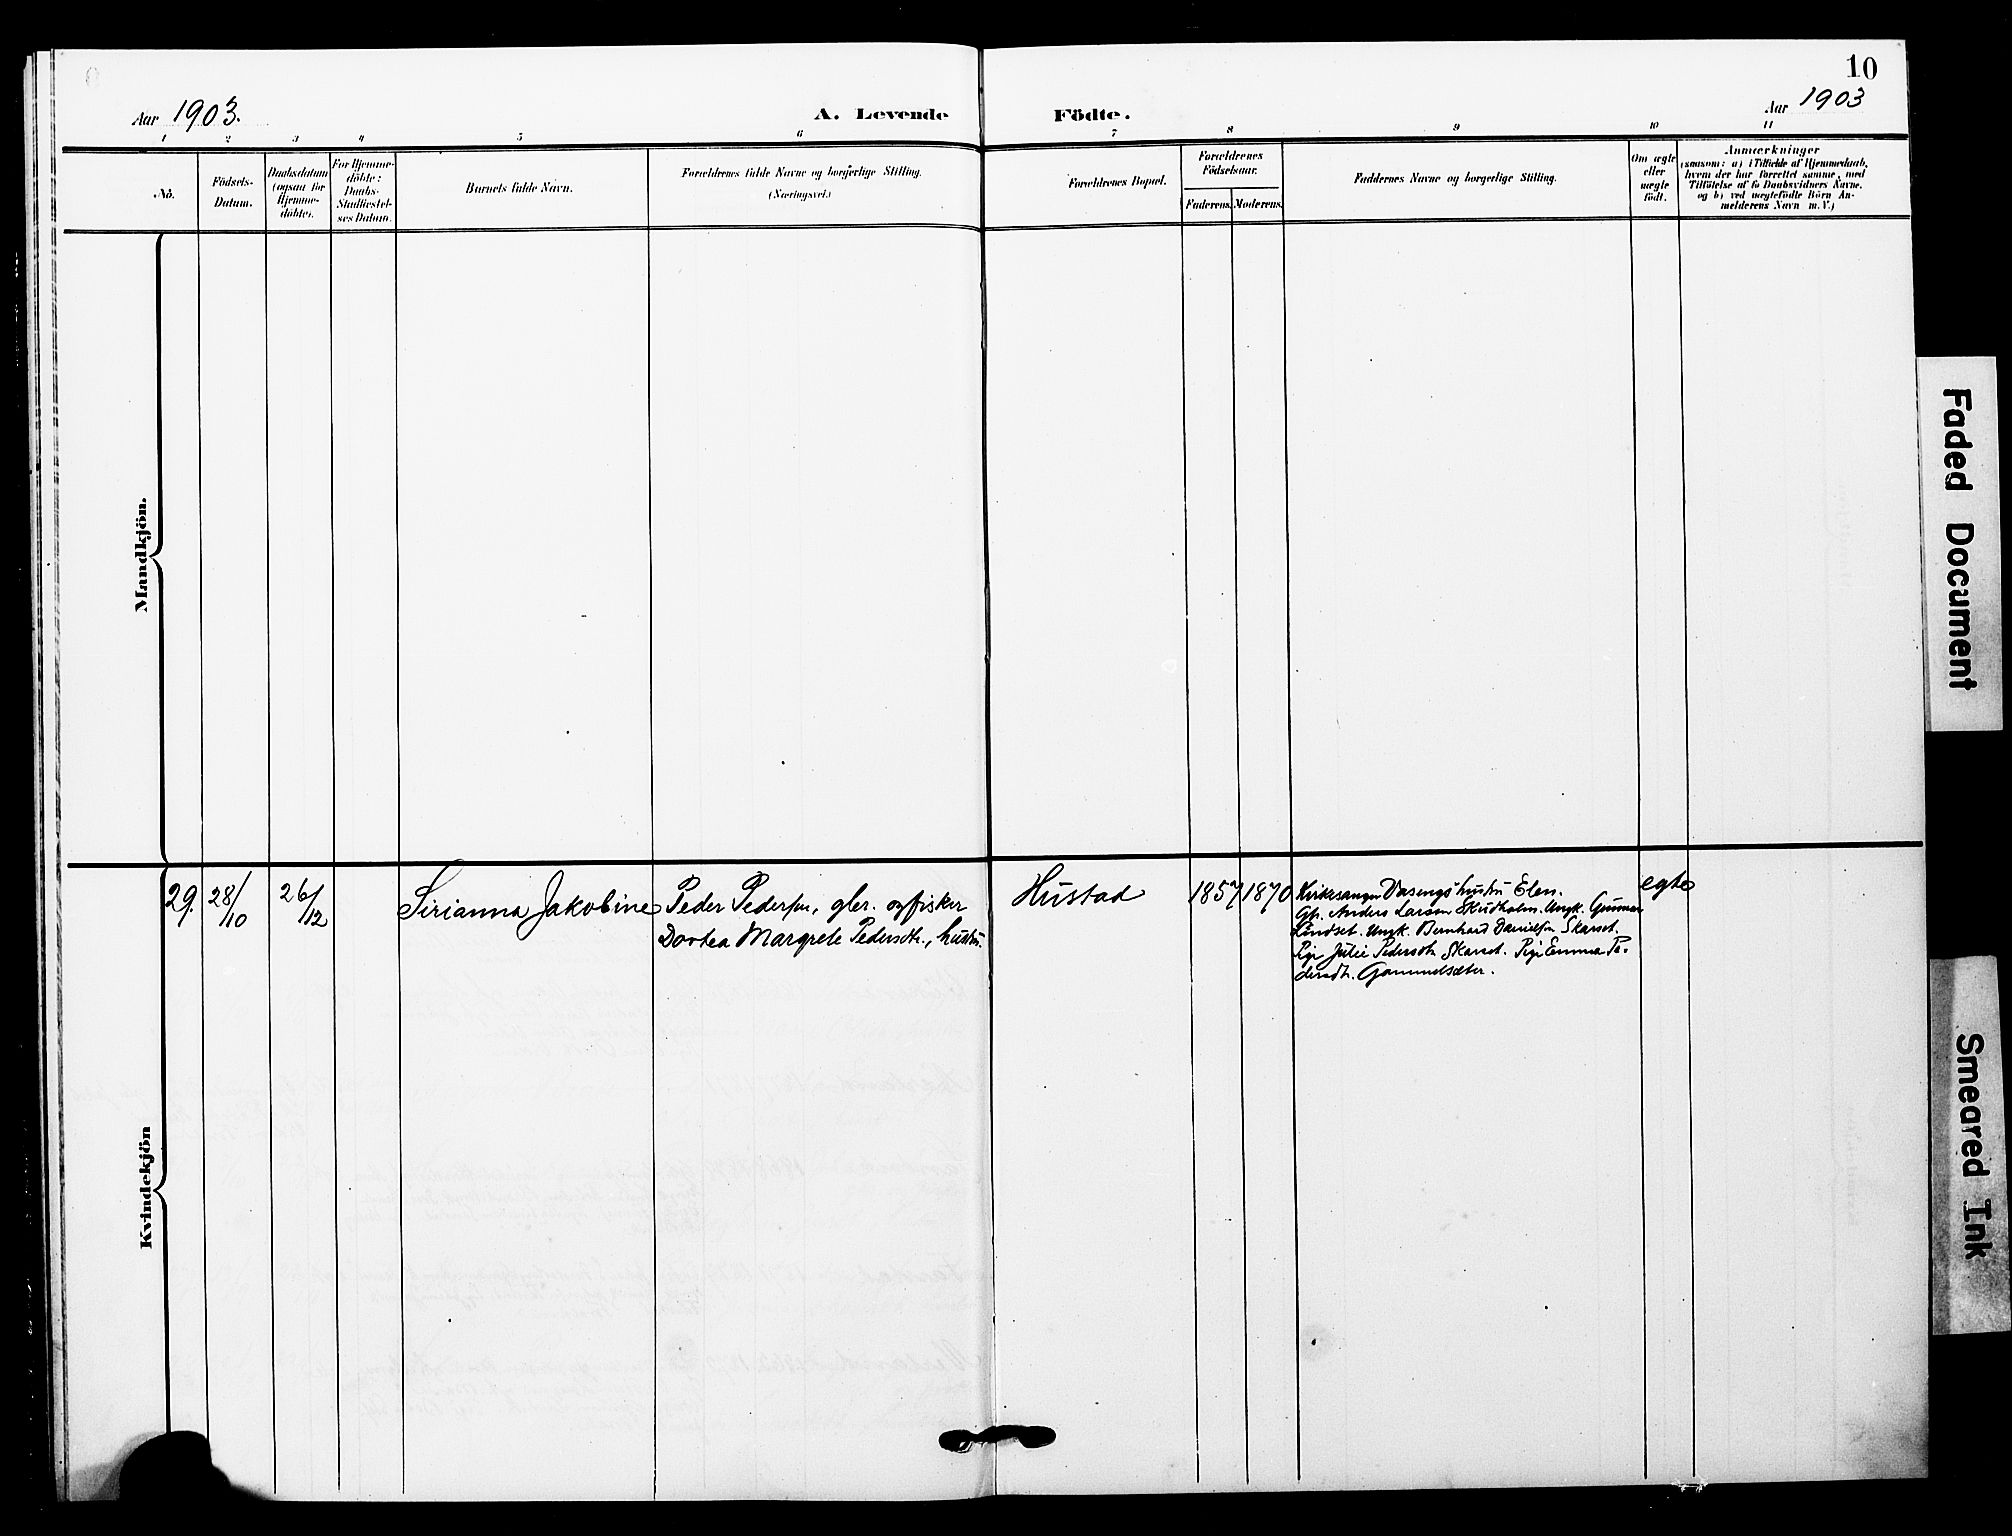 10
Aar 1903.
A. Levende
Födte.
Aar 1903
1 2 3 4 5 6 7 8 9 10 11
No.
Födsels-
Datum.
Daabsdatum
(ogsaa for
Hjemme-
döbte).
For Hjemme-
döbte:
Daabs-
Stadfæstel-
ses Datum.
Barnets fulde Navn.
Forældrenes fulde Navne og borgerlige Stilling.
(Næringsvei.)
Forældrenes Bopæl.
Forældrenes
Födselsaar.
Faderens. Moderens.
Faddernes Navne og borgerlige Stilling.
Om ægte
eller
uægte
födt.
Anmærkninger
(saasom: a) i Tilfælde af Hjemmedaab,
hvem der har forrettet samme, med
Tilföielse af to Daabsvidners Navne,
og b) ved uægtefödte Börn An-
melderens Navn m. V.)
Mandkjön.
Kvindekjön
29. 28/10 26/12 Sirianna Jakobine
Peder Pedersen, gbr. og fisker
Dortea Margrete Pedersdtr., hustru.
Hustad 1857 1870
Kirkesanger Vasengs hustru Elen.
Gbr. Anders Larsen Skudholm. Ungk. Gunnar
Lindset. Ungk. Bernhard Danielsen Skarset.
Pige Julie Pedersdtr. Skarset. Pige Emma Pe-
dersdtr. Gammelsæter.
egte
Faded Document
Smeared Ink